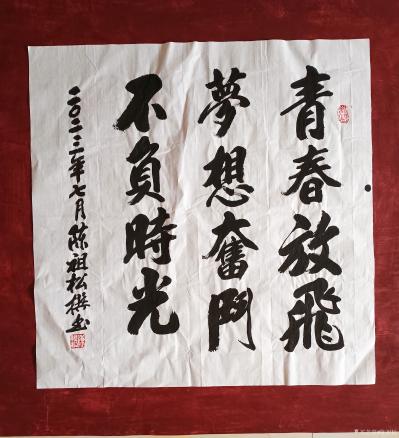 青春放飛
夢想奮鬥
不負時光
二〇二三年七月陈祖松樵书